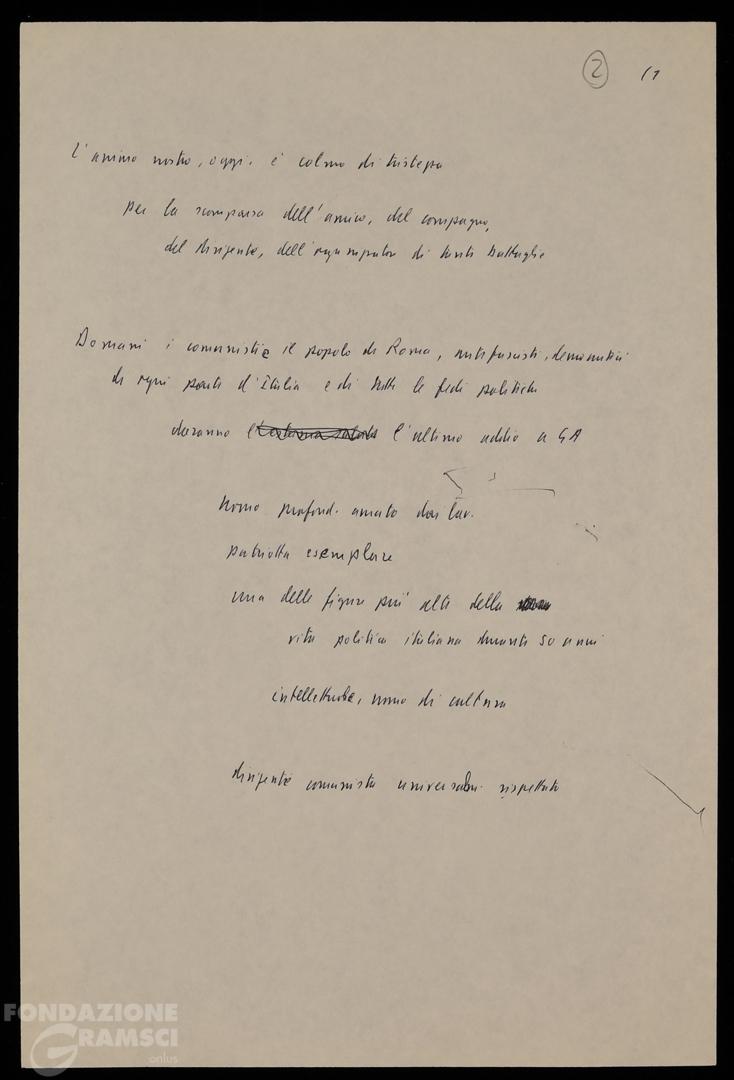 2 /1
L'animo nostro, oggi, è colmo di tristezza
per la scomparsa dell'amico, del compagno,
del dirigente, dell'organizzatore di tante battaglie
Domani i comunisti e il popolo di Roma, antifascisti, democratici
di ogni parte d'Italia e di tutte le fedi politiche
daranno l'ultimo addio a GA
uomo profond. amato dai lav.
patriotta esemplare
una delle figure più alte della
vita politica italiana durante 50 anni
intellettuale, uomo di cultura
dirigente comunista universalm. rispettato
FONDAZIONE
GRAMSCI
onlus